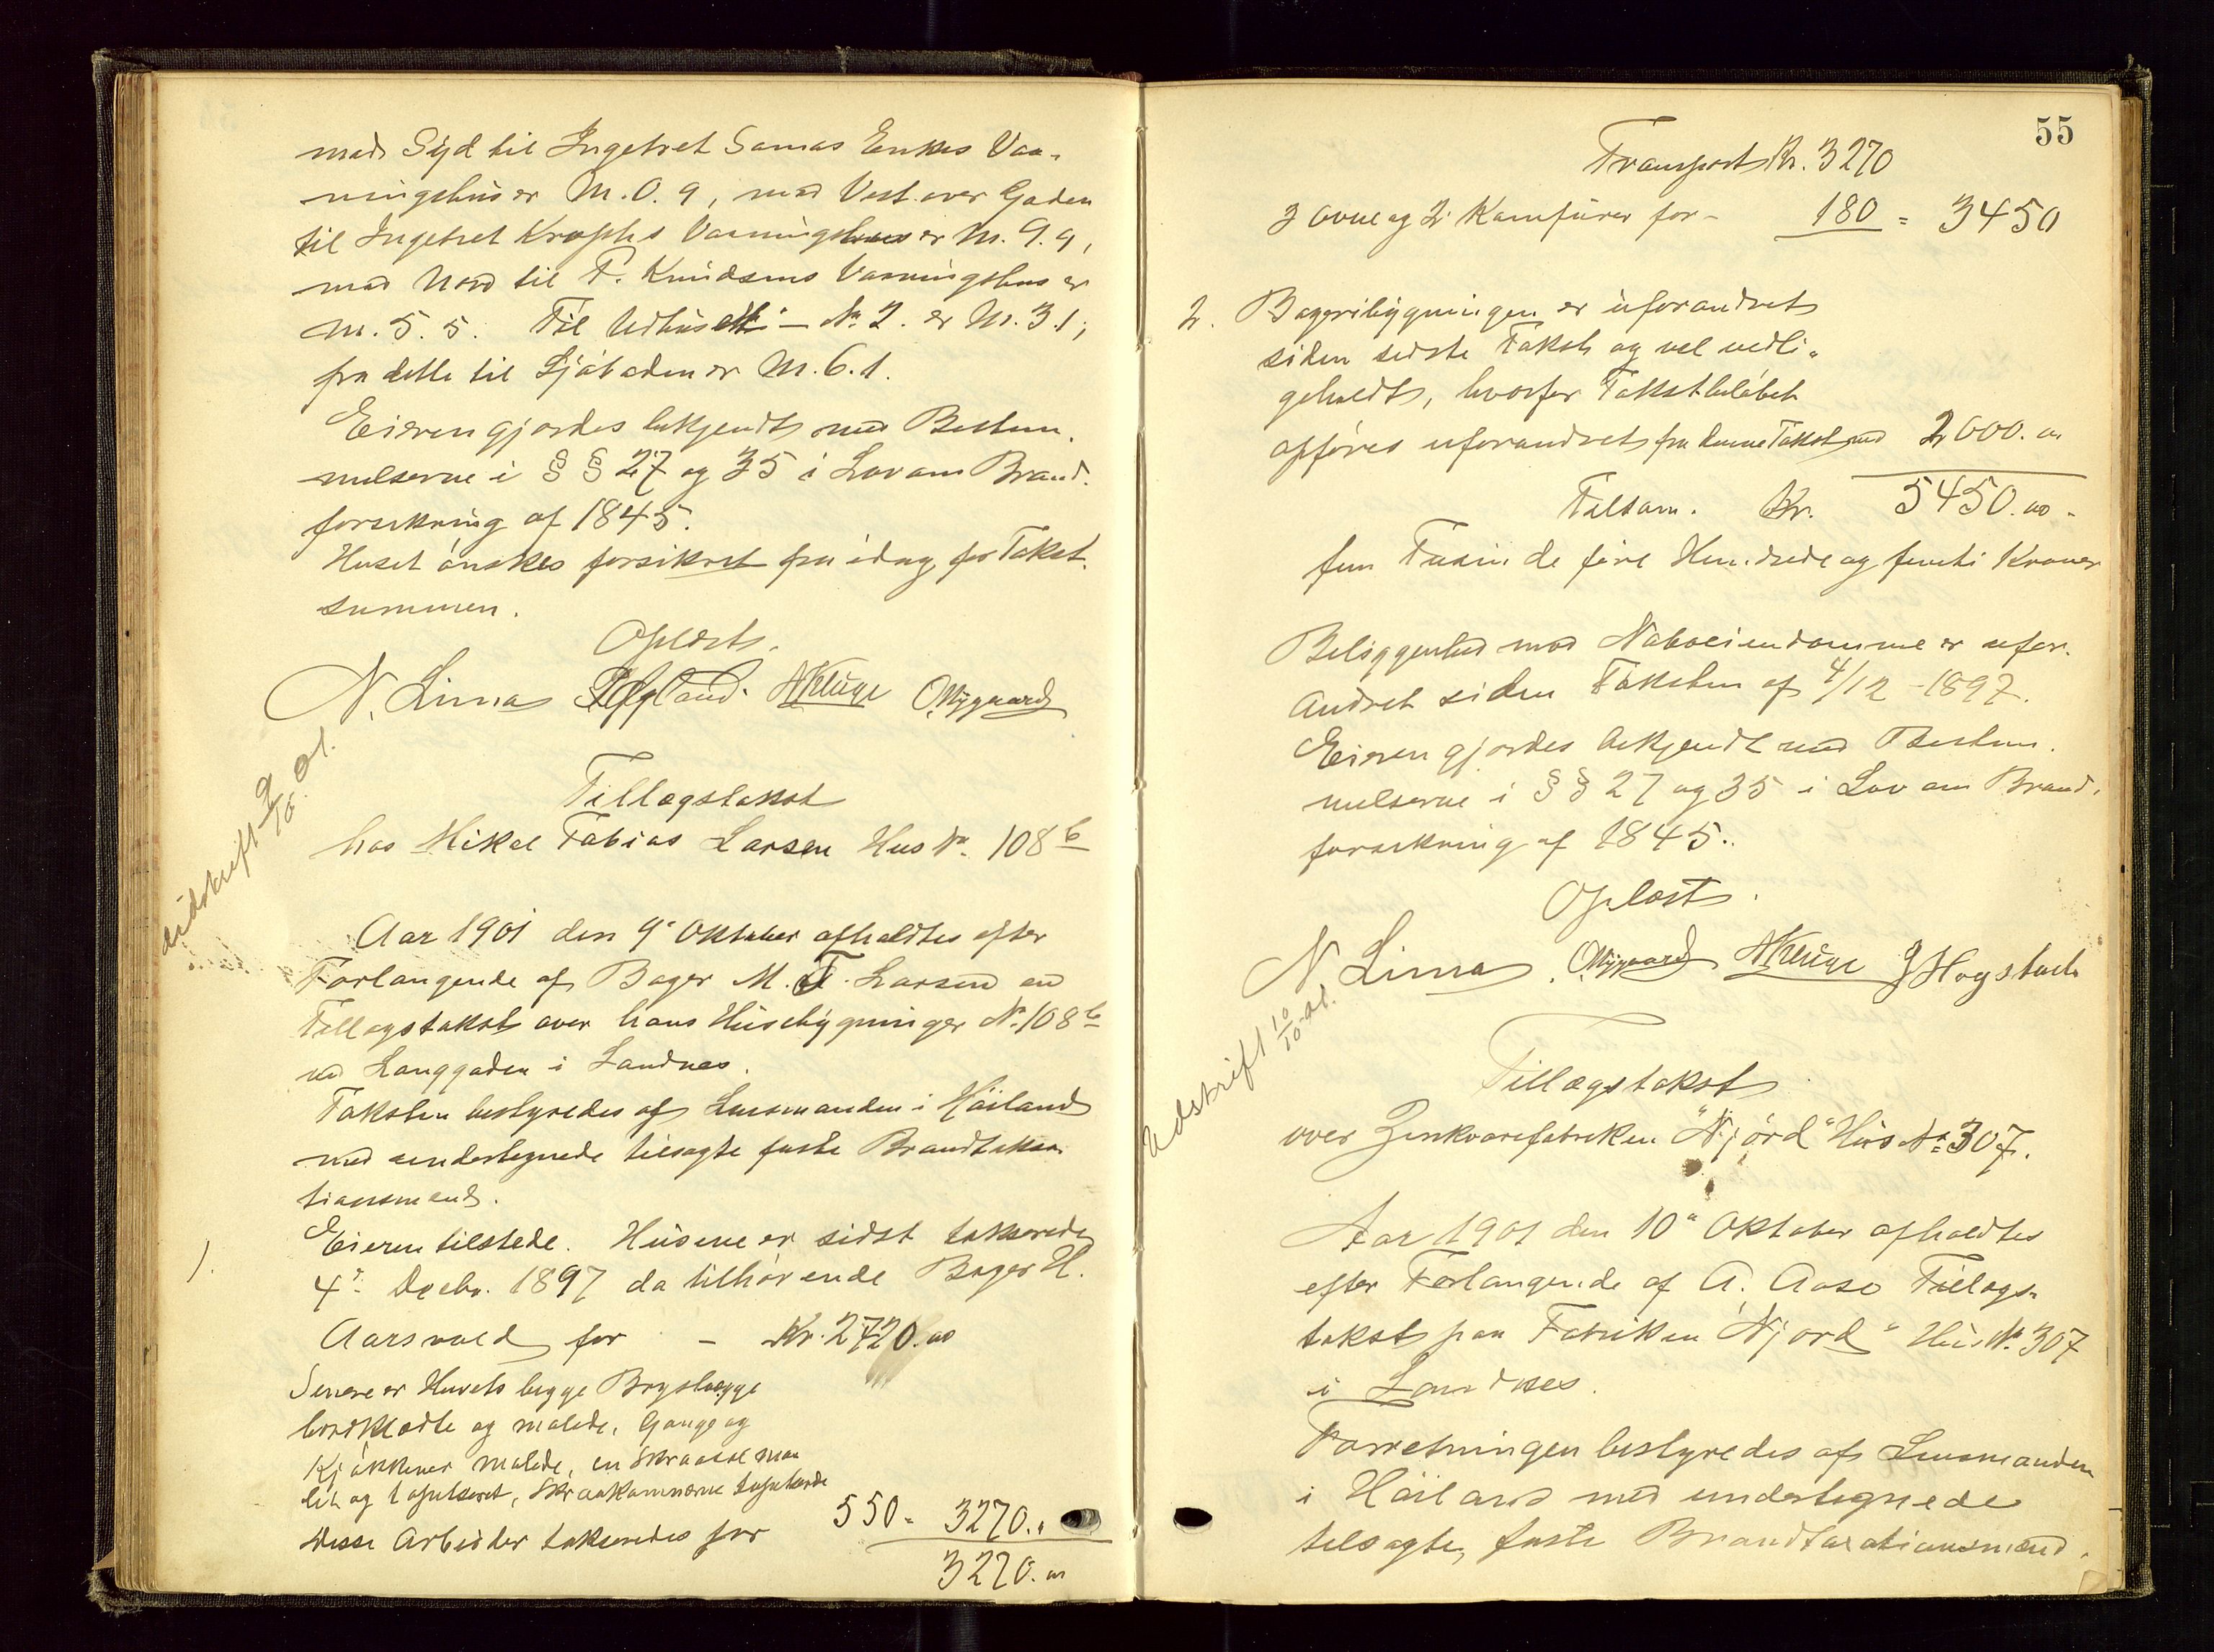 mod Syd til Ingebret Somas Enkes Vaa-
ningshus er M. 0.9, mod Vest over Gaden
til Ingebret Krophs Vaaningshus er M. 9.9,
mod Nord til T. Knudsens Vaaningshus er
M. 5.5. Til Udhuset - No 2. er M. 3.1,
fra dette til Sjøboden er M. 6.1.
Eieren gjordes bekjendt med Bestem-
melserne i §§ 27 og 35 i Lov om Brand-
forsikring af 1845.
Huset ønskes forsikret fra idag for Takst-
summen.
Oplæst.
N. Lima A Kluge O. Nygaard
Udskrift 9/10. 01.
Tillægstakst
hos Mikal Tobias Larsen Hus No. 108 b
Aar 1901 den 9de Oktober afholdtes efter
Forlangende af Bager M. T. Larsen en
Tillægstakst over hans Husebygninger No. 108 b
ved Langgaden i Sandnes.
Taksten bestyredes af Lensmanden i Høiland
med undertegnede tilsagte faste Brandtaksa-
tionsmænd.
Eieren tilstede. Husene er sidst takserede
1. 4de Decbr. 1897 da tilhørende Bager H.
Aarsvold for - Kr. 2720.00
Senere er Husets begge Brystvægge
bordklædte og malede, Gange og
Kjøkkener malede, en Skraasal ma-
let og tapetseret, Skraakammerne tapetserede
Disse Arbeider takseredes for 550 = 3270.00
3270.00
55
Transport Kr. 3270
3 Ovne og 2 Komfurer for - 180 = 3450
2. Bageribygningen er uforandret
siden sidste Takst og vel vedli-
geholdt, hvorfor Takstbeløbet
opføres uforandret fra denne Takst med 2000.00
Tilsam. Kr. 5450.00
fem Tusinde fire Hundrede og femti Kroner
Beliggenhed mod Naboeiendomme er ufor-
andret siden Taksten af 4/12 - 1897.
Eieren gjordes bekjendt med Bestem-
melserne i §§ 27 og 35 i Lov om Brand-
forsikring af 1845.
Oplæst.
N. Lima O. Nygaard A Kluge J Hogstad
Udskrift 10/10. 01.
Tillægstakst
over Zinkvarefabriken "Njørd" Hus No 307.
Aar 1901 den 10de Oktober afholdtes
efter Forlangende af A. Aase Tillægs-
takst paa Fabriken "Njord" Hus No. 307
i Sandnes.
Forretningen bestyredes af Lensmanden
i Høiland med undertegnede
tilsagte, faste Brandtaxationsmænd.